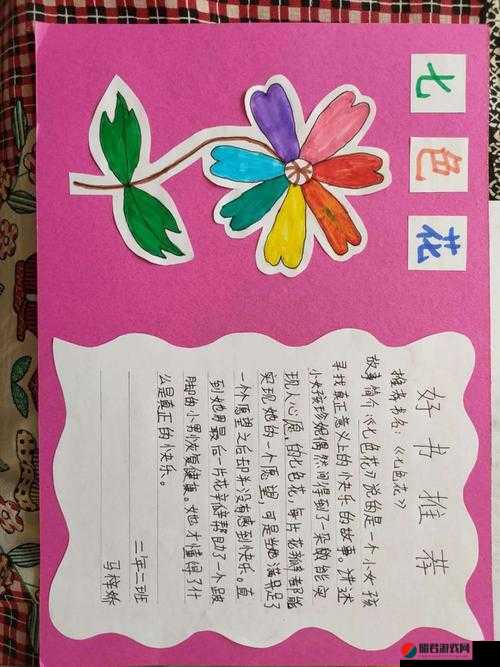 七色花
好书推荐
推荐书名:《七色花》
故事简介《七色花》说的是一个小女孩
寻找真正意义上的快乐的故事。讲述
小女孩珍妮偶然间得到了一朵能实
现人心愿的七色花,每片花瓣都能
实现她的一个愿望,可是当她满足了
一个个愿望之后却并没有感到快乐。直
到她用最后一片花瓣帮助了一个跛
脚的小男孩恢复健康。她才懂得了什
么是真正的快乐。
二年二班
马梓
明君游戏网